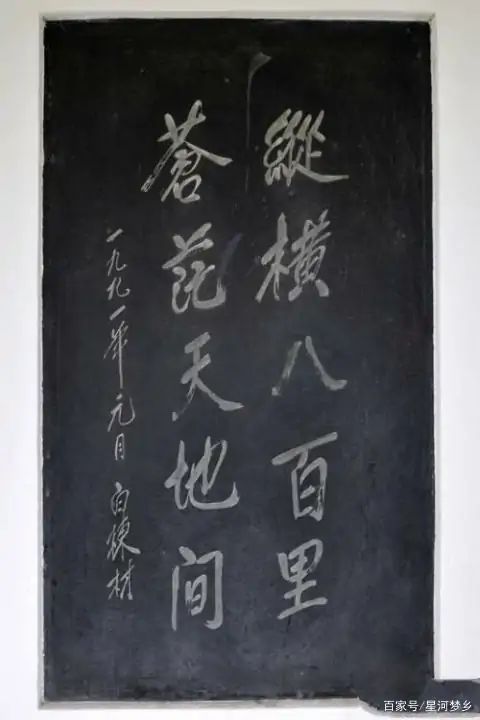 縱横八百里
蒼茫天地间
一九九一年元月 白栋材
百家号/星河梦乡